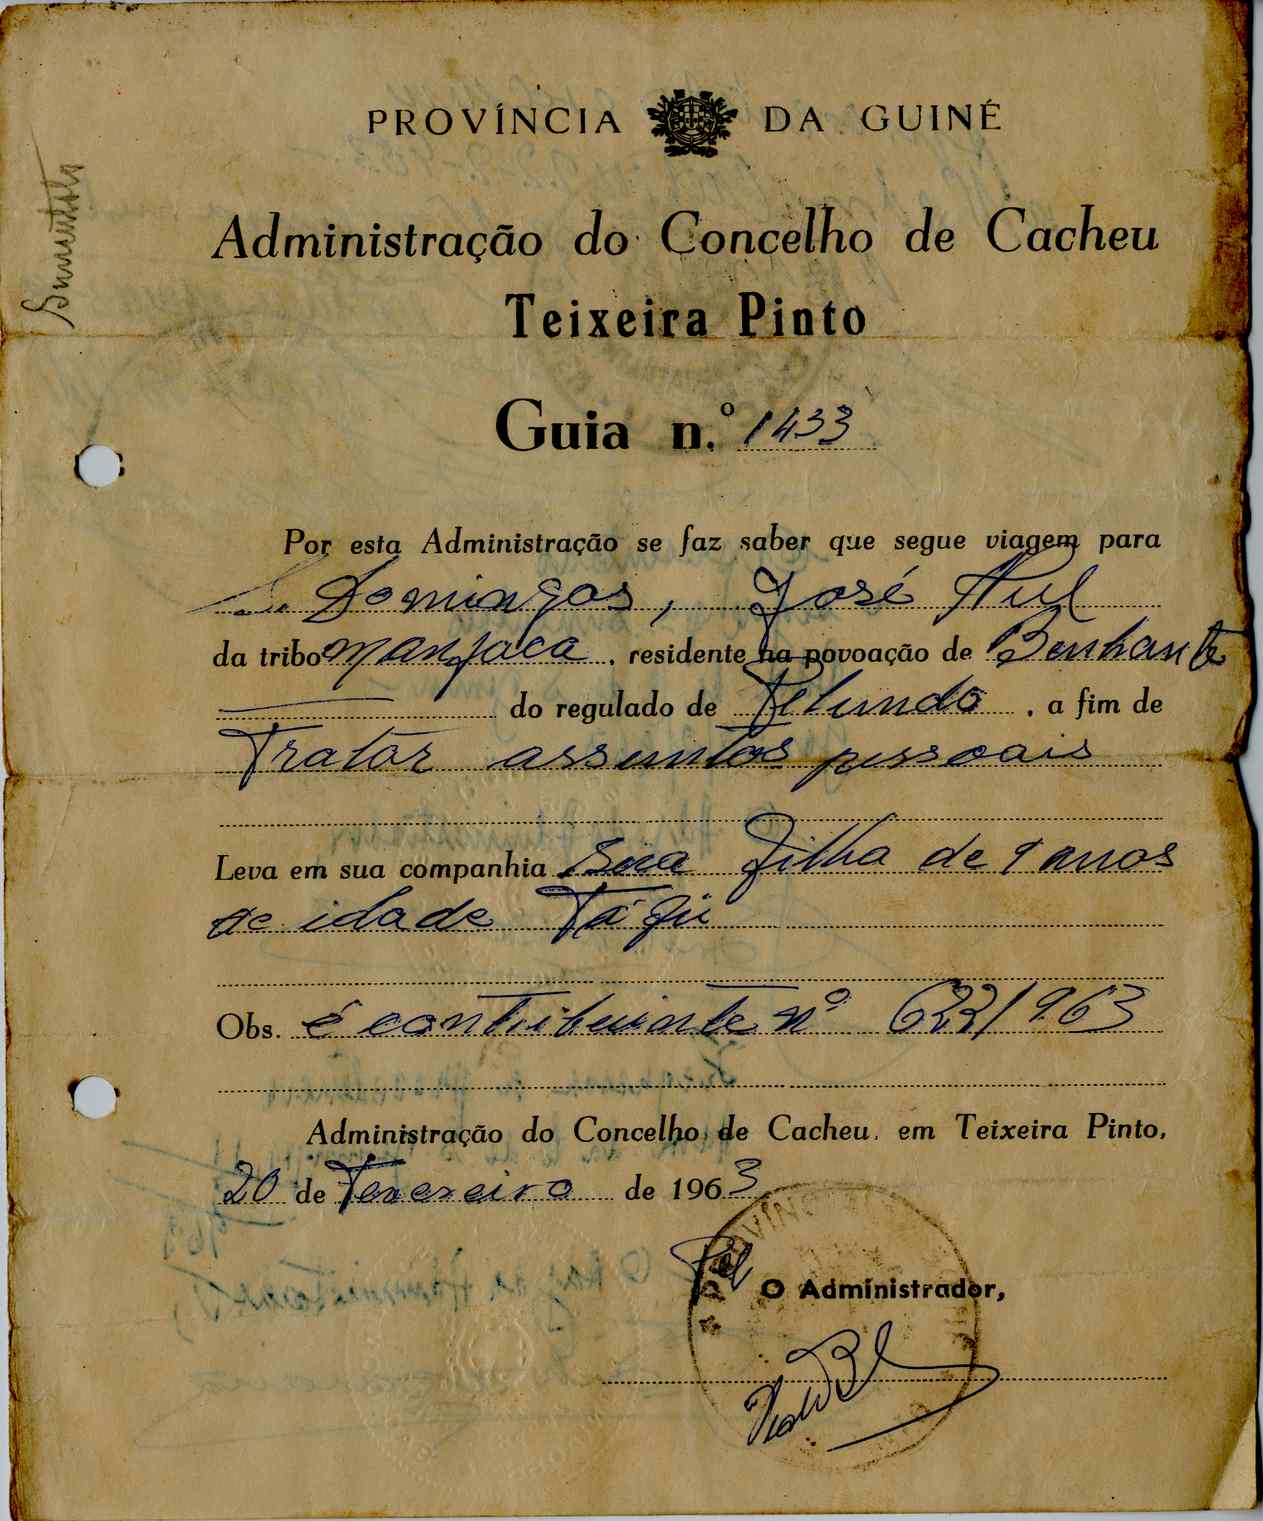 PROVÍNCIA DA GUINÉ
Administração do Concelho de Cacheu
Teixeira Pinto
Guia n.º 1433
Por esta Administração se faz saber que segue viagem para
S. Domingos, José
da tribo manjaca, residente na povoação de Benhante
do regulado de Pelundo, a fim de
Tratar assuntos pessoais
Leva em sua companhia sua filha de 9 anos
de idade
Obs. é contribuinte nº 622/963
Administração do Concelho de Cacheu, em Teixeira Pinto,
20 de Fevereiro de 1963
Pel O Administrador,